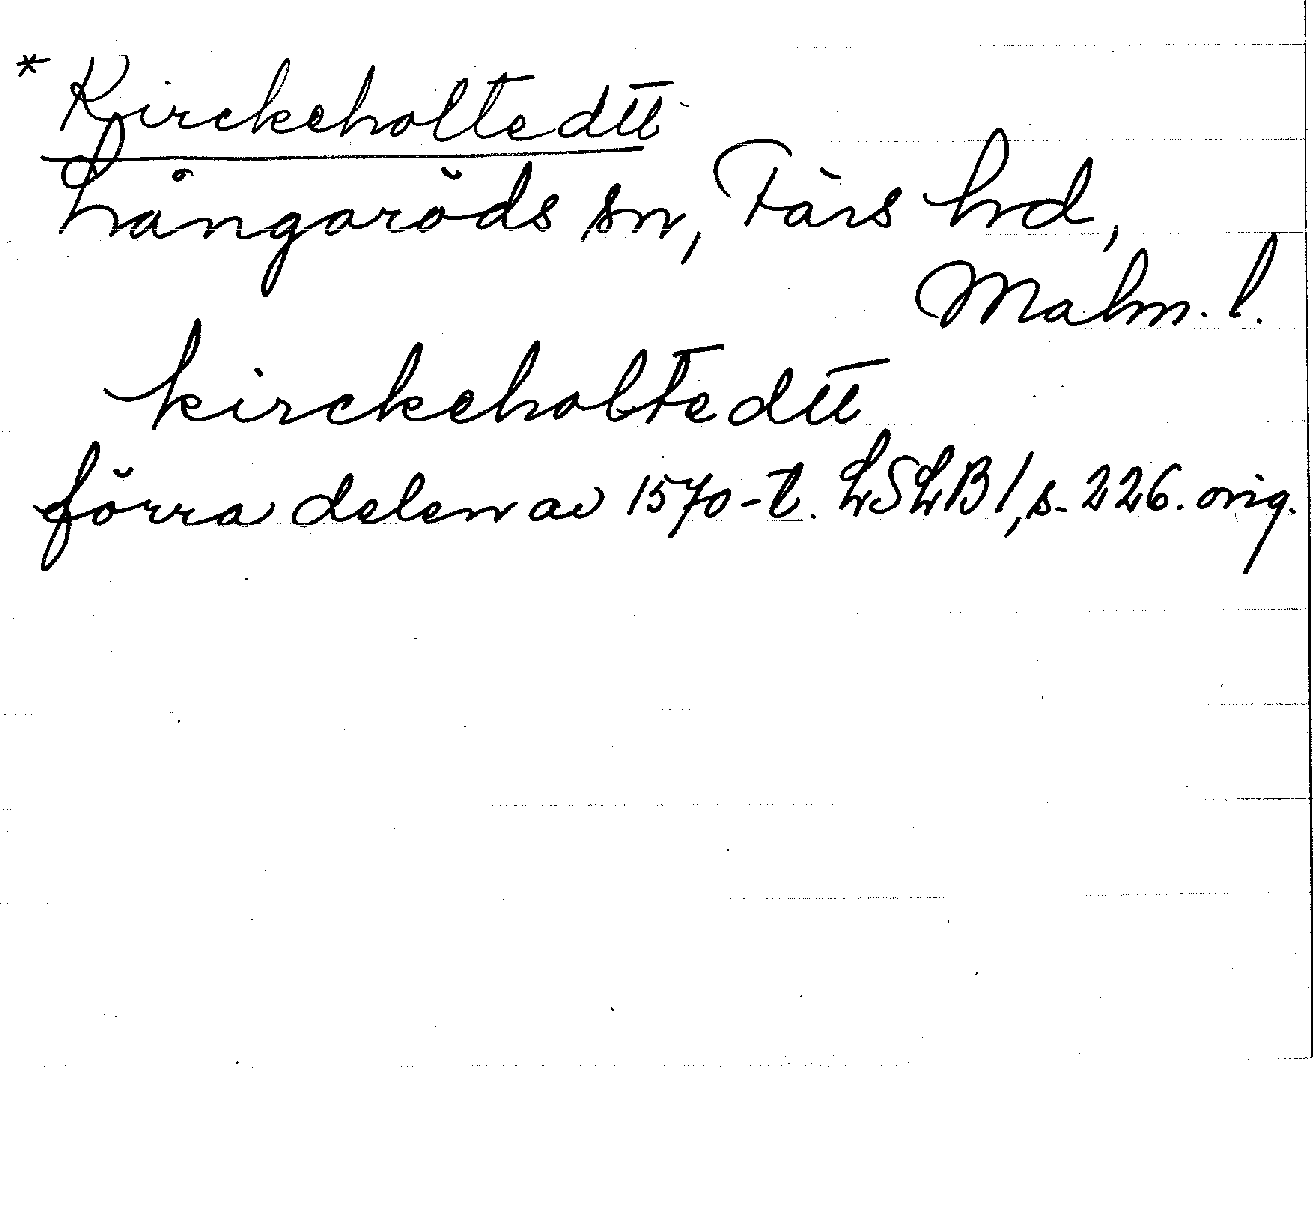 * Kirckeholtedtt
Långaröds sn, Färs hrd,
Malm. l.
kirckeholtedtt
förra delen av 1570-t. LSLB 1, s. 226. orig.